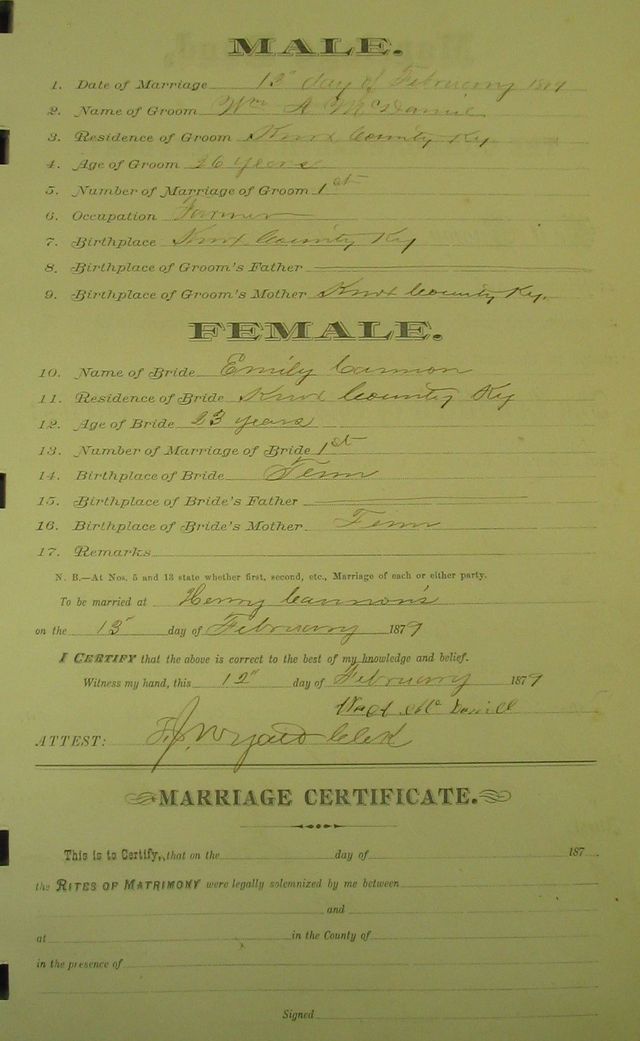 MALE.
1. Date of Marriage 13" day of February 1879
2. Name of Groom Wm A McDaniel
3. Residence of Groom Knox County Ky
4. Age of Groom 26 years
5. Number of Marriage of Groom 1st
6. Occupation Farmer
7. Birthplace Knox County Ky
8. Birthplace of Groom's Father
9. Birthplace of Groom's Mother Knox County Ky.
FEMALE.
10. Name of Bride Emily Cannon
11. Residence of Bride Knox County Ky
12. Age of Bride 23 years
13. Number of Marriage of Bride 1st
14. Birthplace of Bride Tenn
15. Birthplace of Bride's Father
16. Birthplace of Bride's Mother Tenn
17. Remarks
N. B.—At Nos. 5 and 13 state whether first, second, etc., Marriage of each or either party.
To be married at Henry Cannon's
on the 13" day of February 1879
I CERTIFY that the above is correct to the best of my knowledge and belief.
Witness my hand, this 12" day of February 1879
McDaniel
ATTEST: Clerk
MARRIAGE CERTIFICATE.
This is to Certify, that on the day of 187
the RITES OF MATRIMONY were legally solemnized by me between
and
at in the County of
in the presence of
Signed